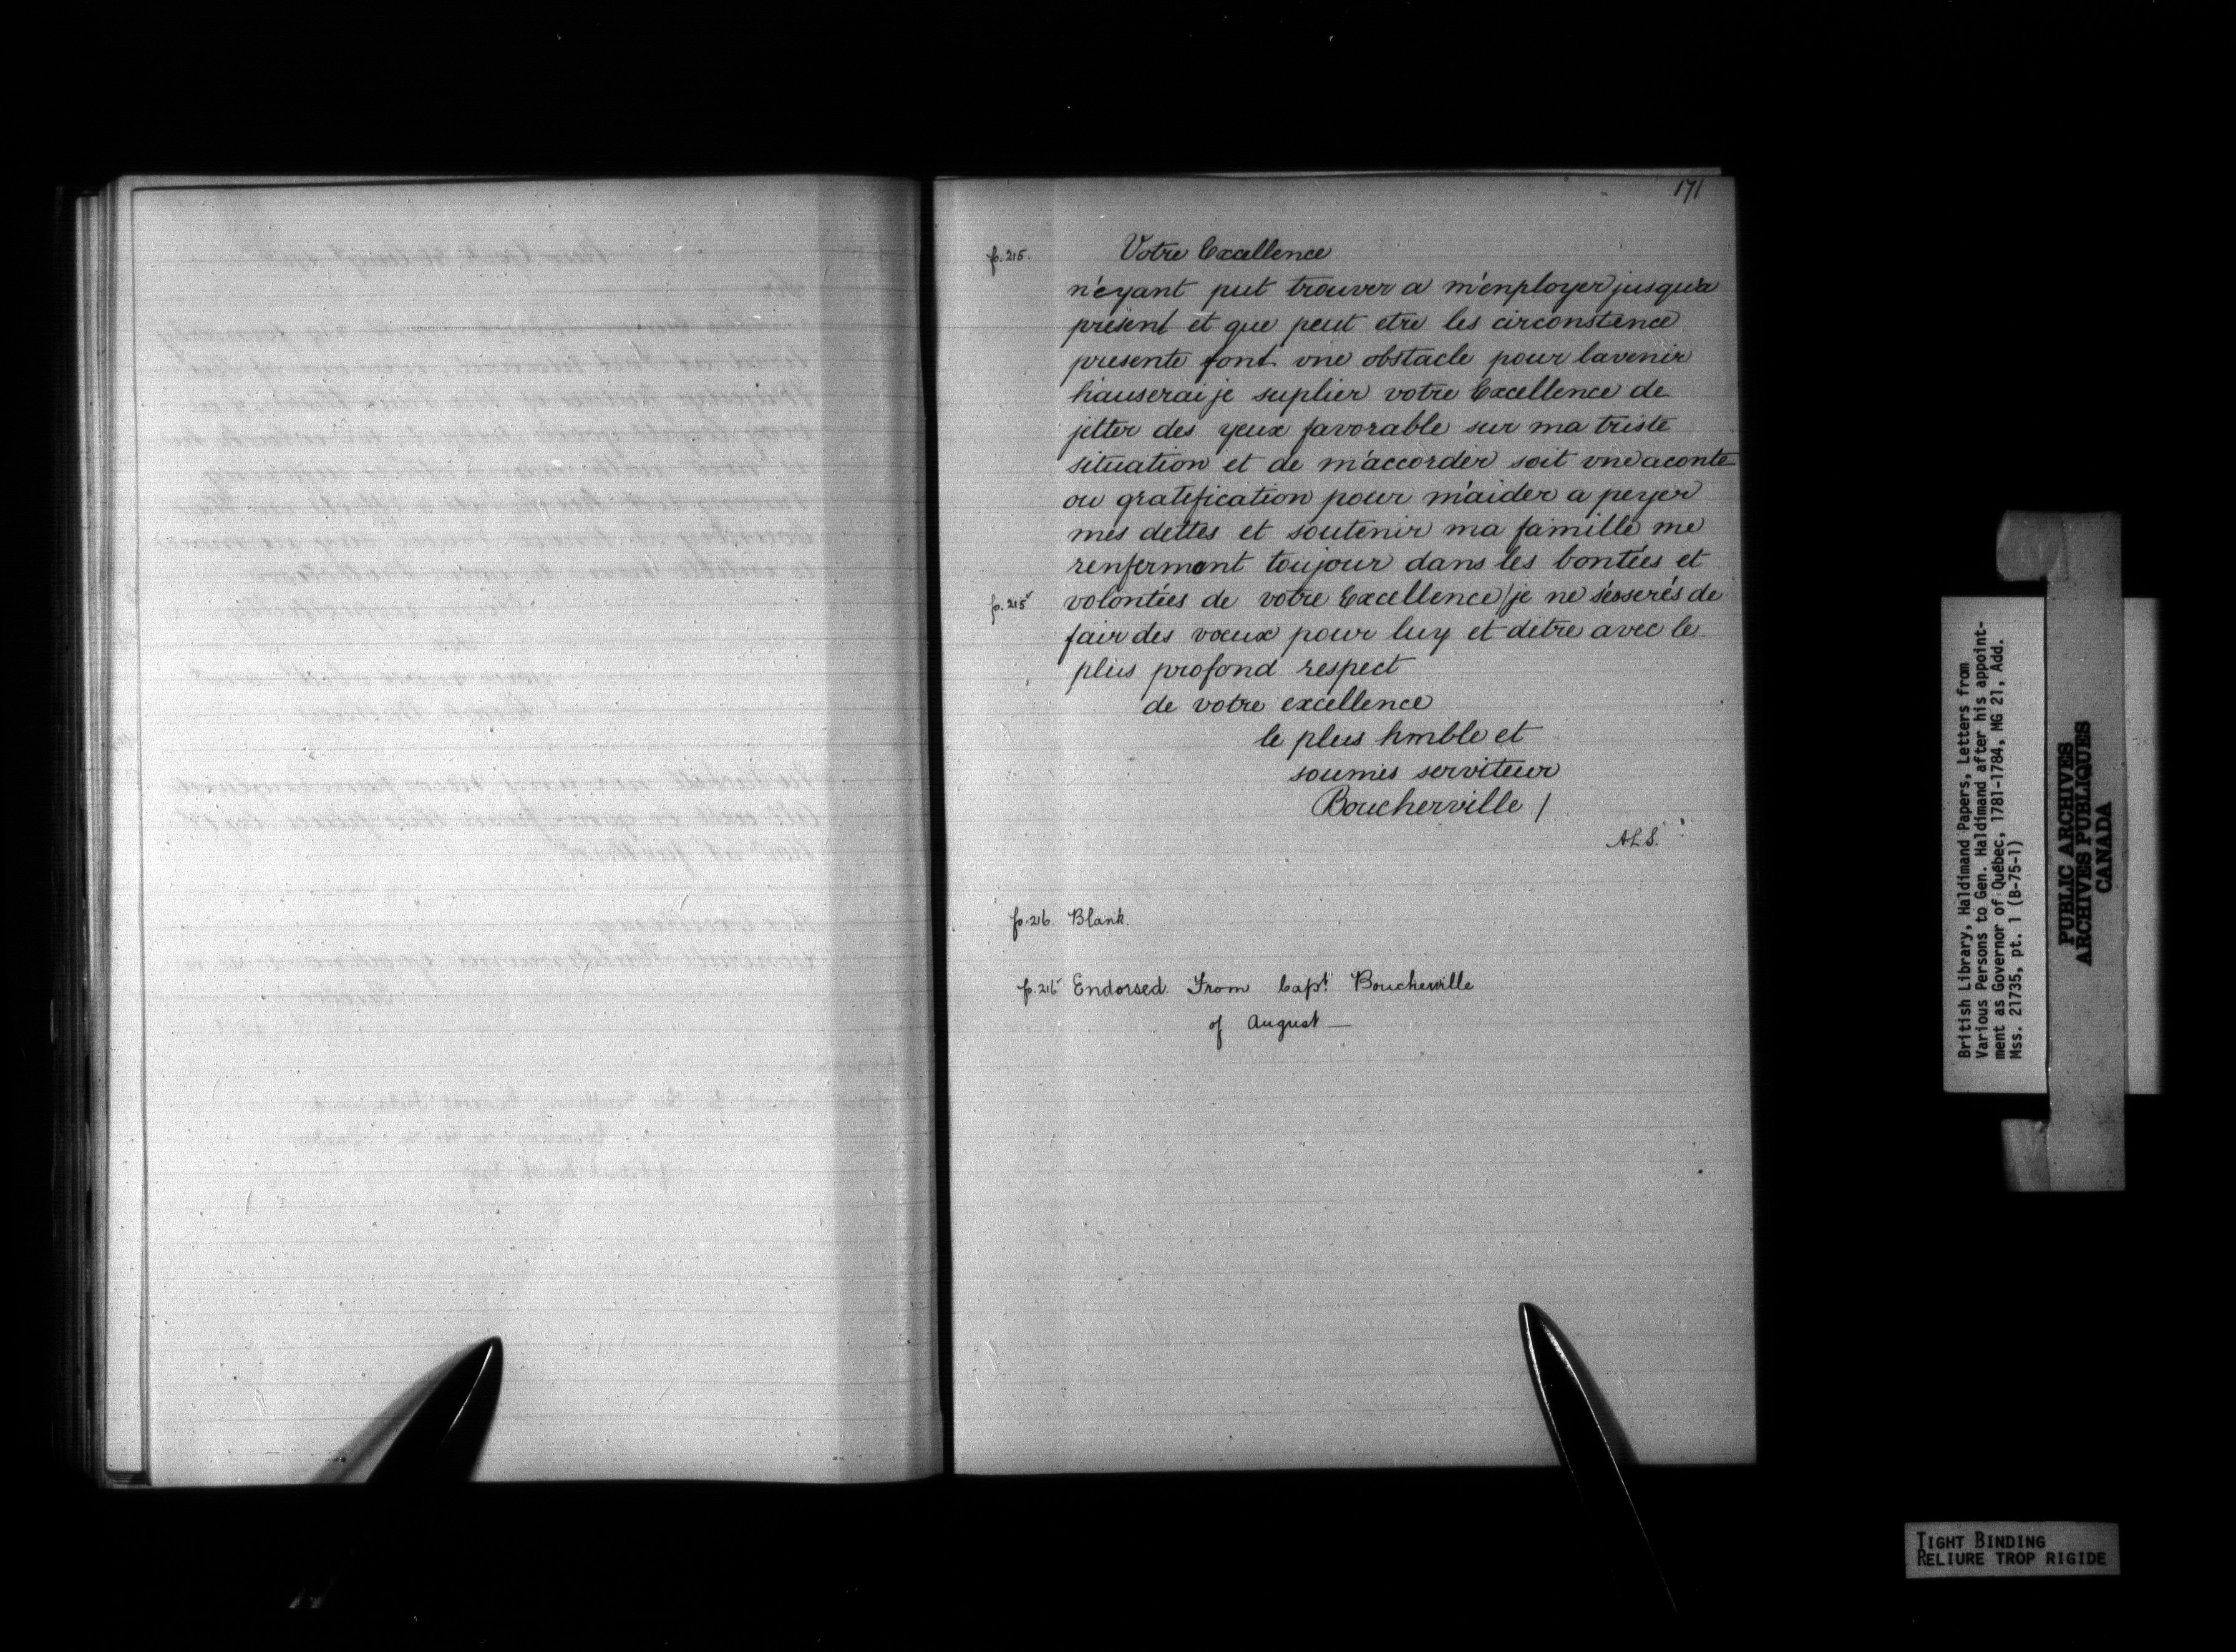 171
f. 215. Votre Excellence
n'eyant put trouver a m'enployer jusqu'a
present et que peut etre les circonstence
presente font vne obstacle pour lavenir
hauserai je suplier votre Excellence de
jetter des yeux favorable sur ma triste
situation et de m'accorder soit vne aconte
ou gratification pour m'aider a peyer
mes dettes et soutenir ma famille me
renferment toujour dans les bontées et
f. 215v volontées de votre Excellence/je ne sésserés de
fair des vœux pour luy et detre avec le
plus profond respect
de votre excellence
le plus hmble et
soumis serviteur
Boucherville /
A.L.S.
f. 216. Blank.
Endorsed. From Capt. Boucherville
of August —
British Library, Haldimand Papers, Letters from
Various Persons to Gen. Haldimand after his appoint-
ment as Governor of Québec, 1781-1784, MG 21, Add.
Mss. 21735, pt. 1 (B-75-1)
PUBLIC ARCHIVES
ARCHIVES PUBLIQUES
CANADA
TIGHT BINDING
RELIURE TROP RIGIDE